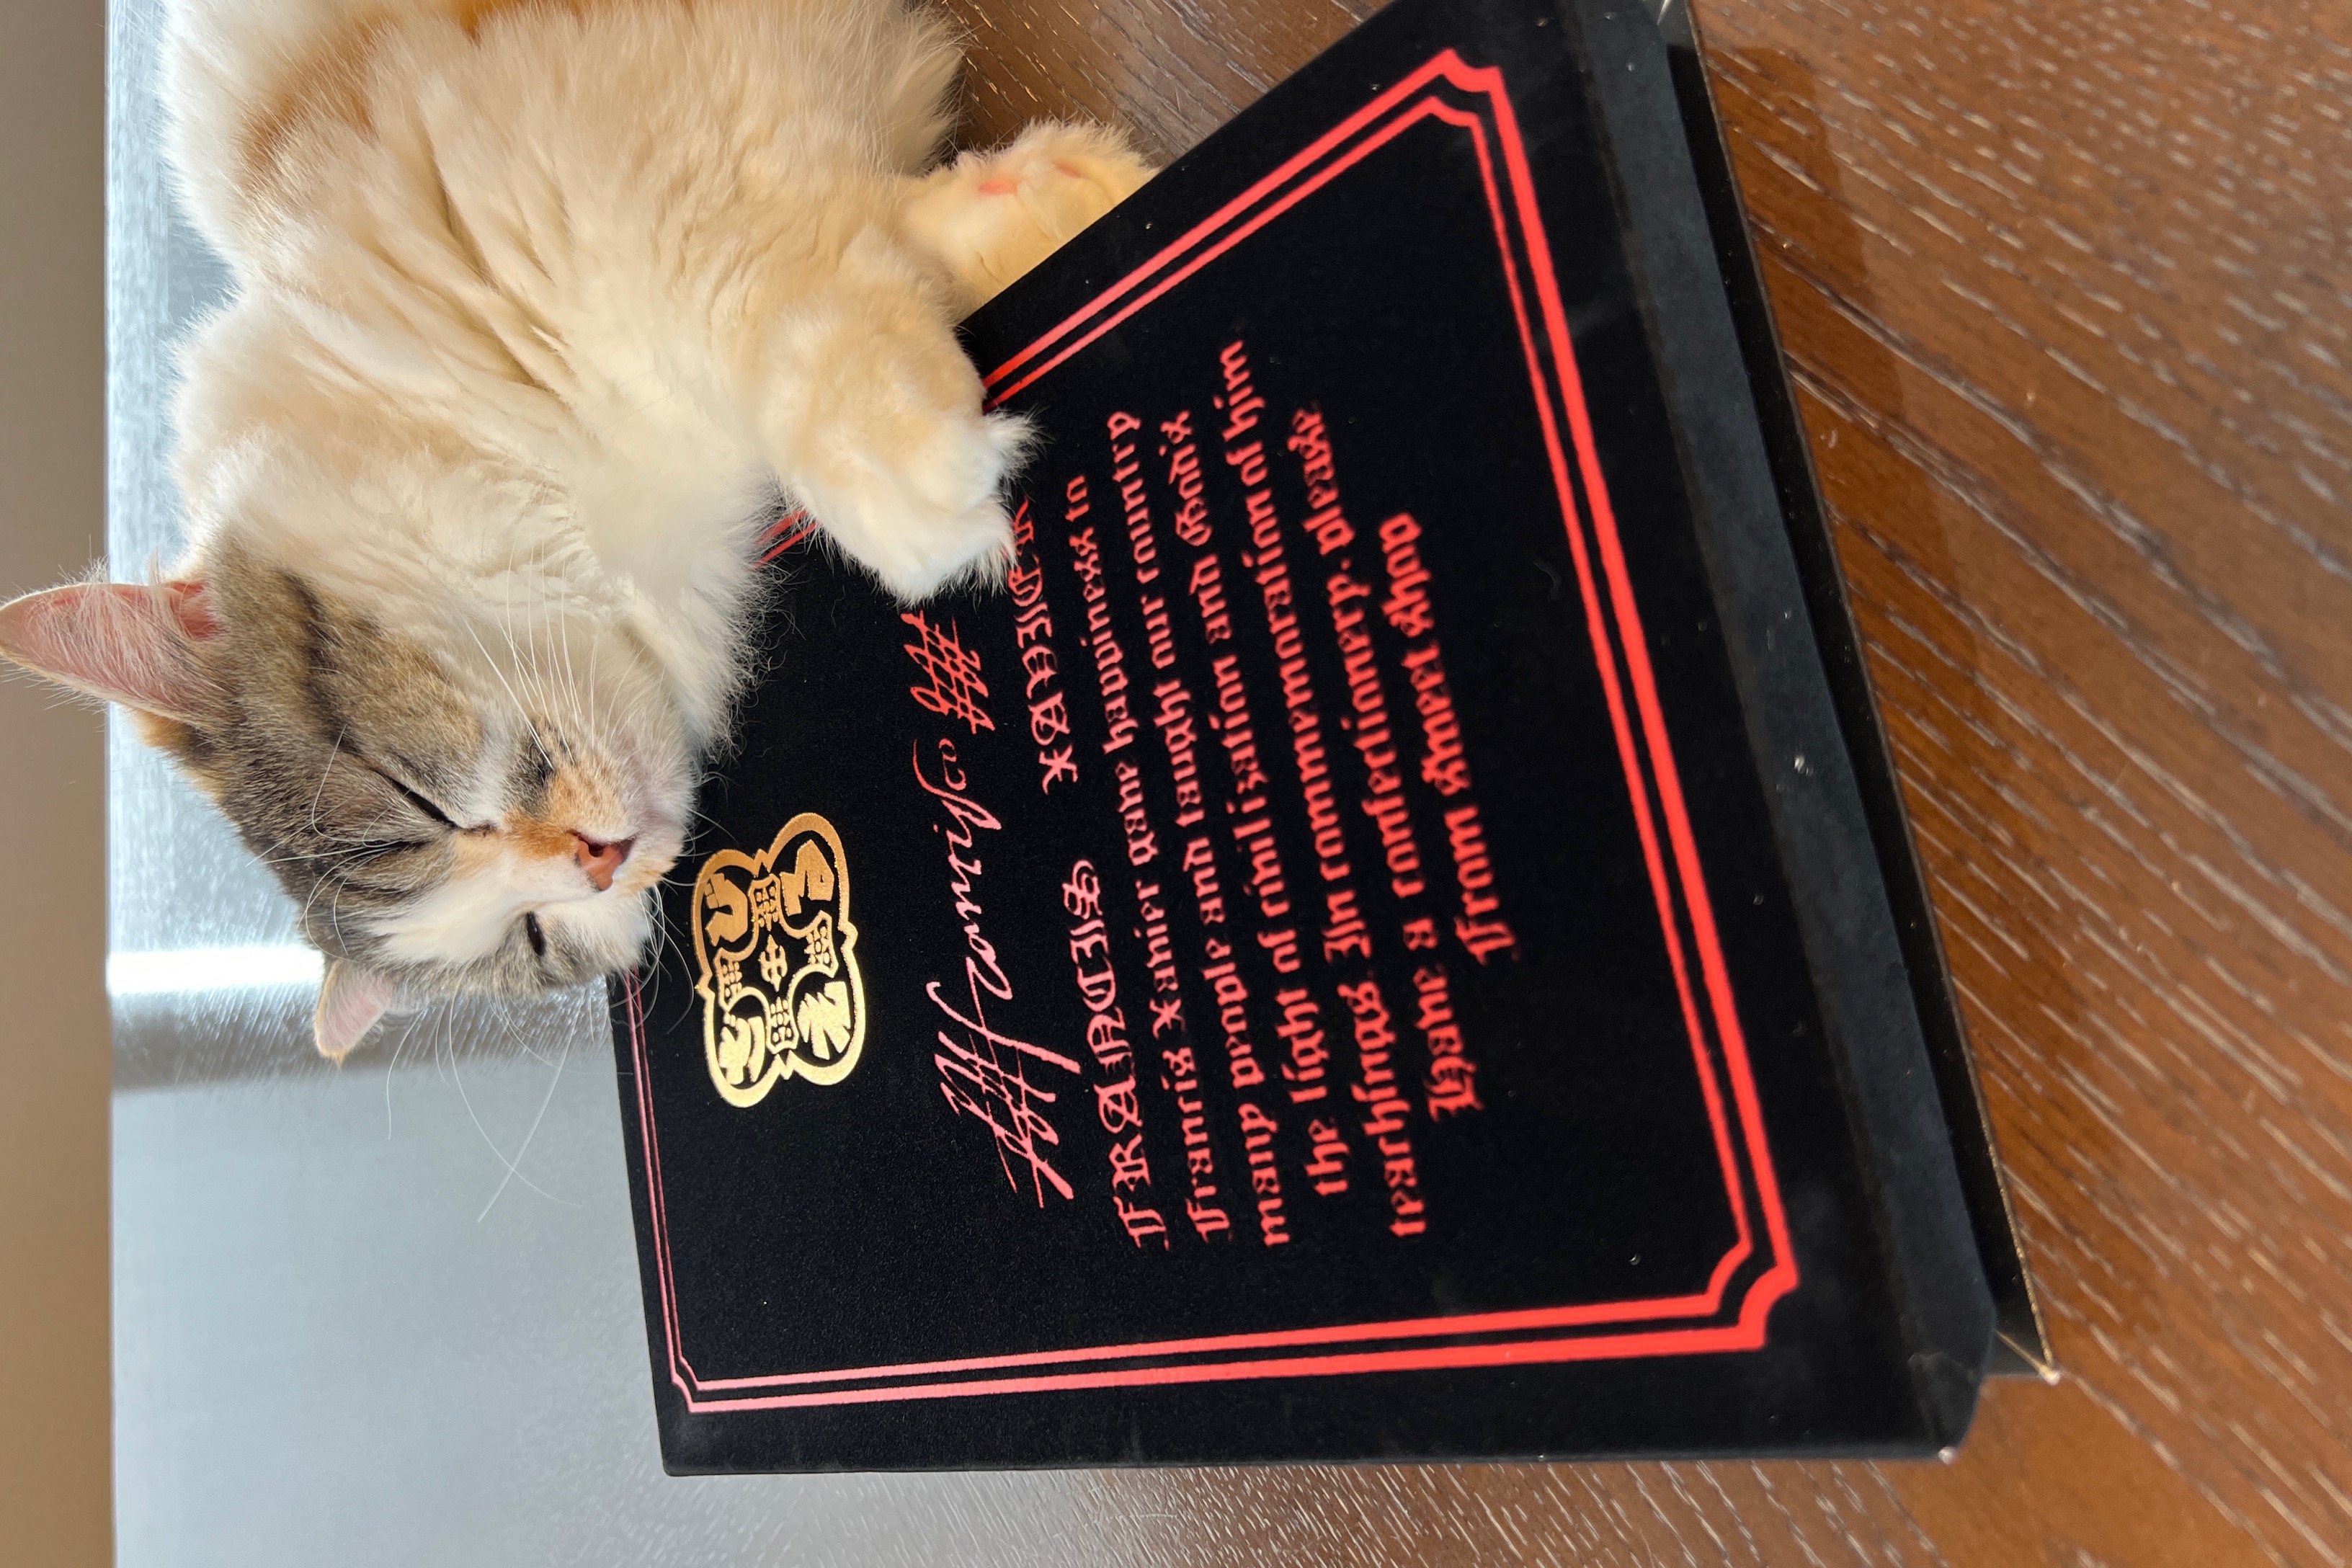 Francisco
FRANCIS XAVIER
Francis Xavier gave happiness to
many people and taught our country
the light of civilization and Godis
teachings. In commemoration of him
Have a confectionery, please
From Sweet shop